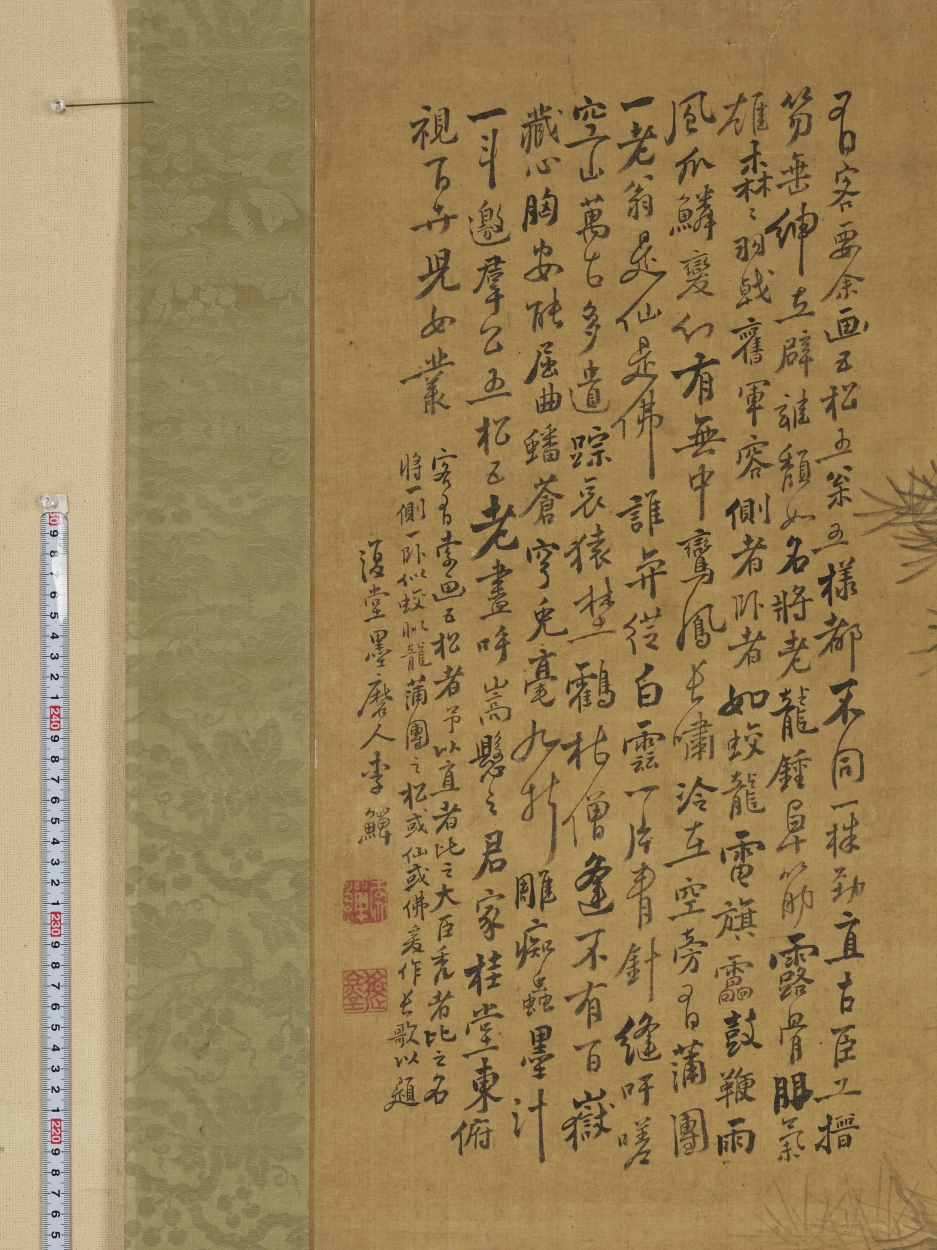 有客要余画五松五簇五樣都不同一株勁直古臣工搢
笏垂紳立辟誰頹如名將老龍鍾阜筋露骨眼氣
雄森々羽戟舊軍容側者卧者如蛟龍電旗靁鼓鞭雨
風爪鱗變幻有無中鸞鳳長嘯冷在空旁有蒲團
一老翁是仙是佛誰與從白雲一片青針縫吁嗟
空山萬古多遺蹤哀猿埜鶴枯僧逢不有百嶽
藏心胸安能屈曲蟠蒼穹兎毫九折雕痴蟲墨汁
一斗邀羣公五松五老盡呼嵩懸之君家桂堂東俯
視百卉兒女叢
客有索画五松者予以直者比之大臣禿者比之名
將一側一卧似蛟似龍蒲團之松或仙或佛爰作長歌以題
復堂墨磨人李鱓
10 9 8 7 6 5 4 3 2 1 240 9 8 7 6 5 4 3 2 1 230 9 8 7 6 5 4 3 2 1 220 9 8 7 6 5